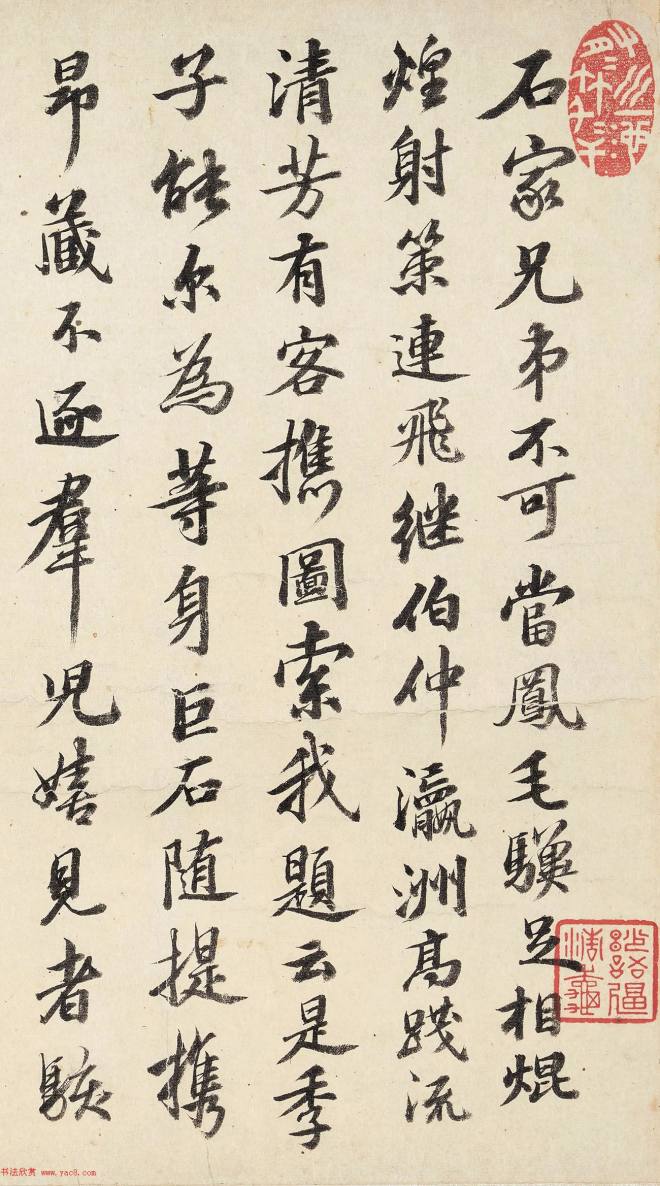 石家兄弟不可當鳳毛驥足相焜
煌射策連飛継伯仲瀛洲高踐流
清芳有客攜圖索我題云是季
子能尔為等身巨石随提携
昂藏不逐羣児嬉見者駭
书法欣赏 www.yac8.com